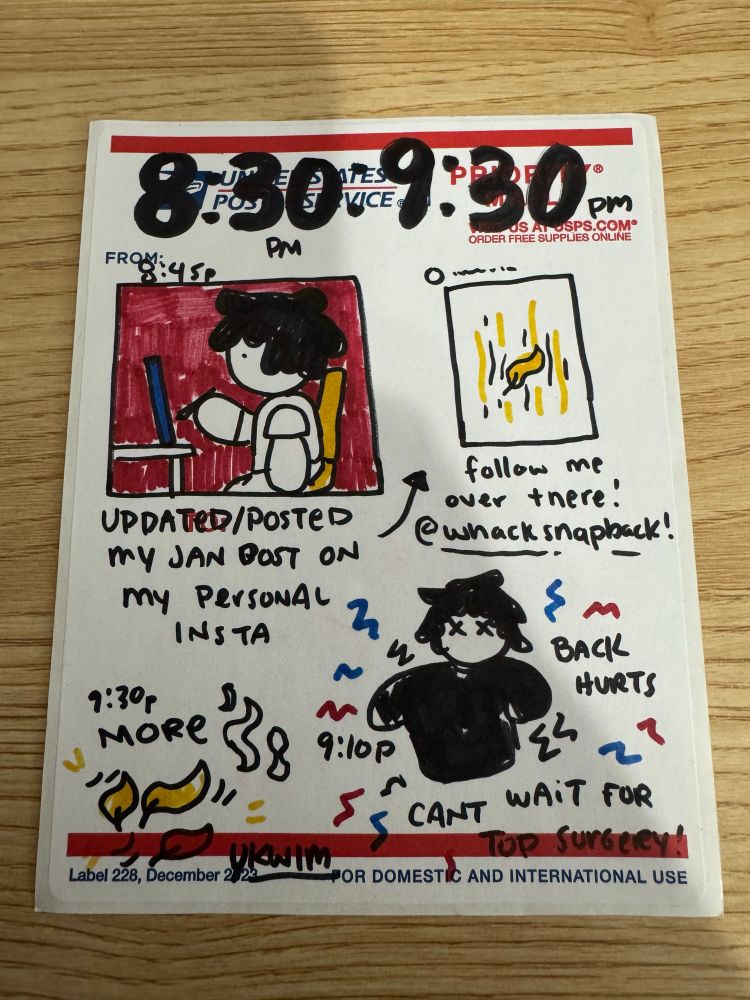 8:30-9:30 pm
PM
UNITED STATES
POSTAL SERVICE®
PRIORITY®
MAIL
VISIT US AT USPS.COM®
ORDER FREE SUPPLIES ONLINE
FROM:
8:45p
UPDATED/POSTED
my JAN POST ON
my PERSONAL
INSTA
TO:
follow me
over there!
@whacksnapback!
BACK
HURTS
9:10p
CANT WAIT FOR
TOP SURGERY!
9:30p
MORE
YKWIM
Label 228, December 2023
FOR DOMESTIC AND INTERNATIONAL USE